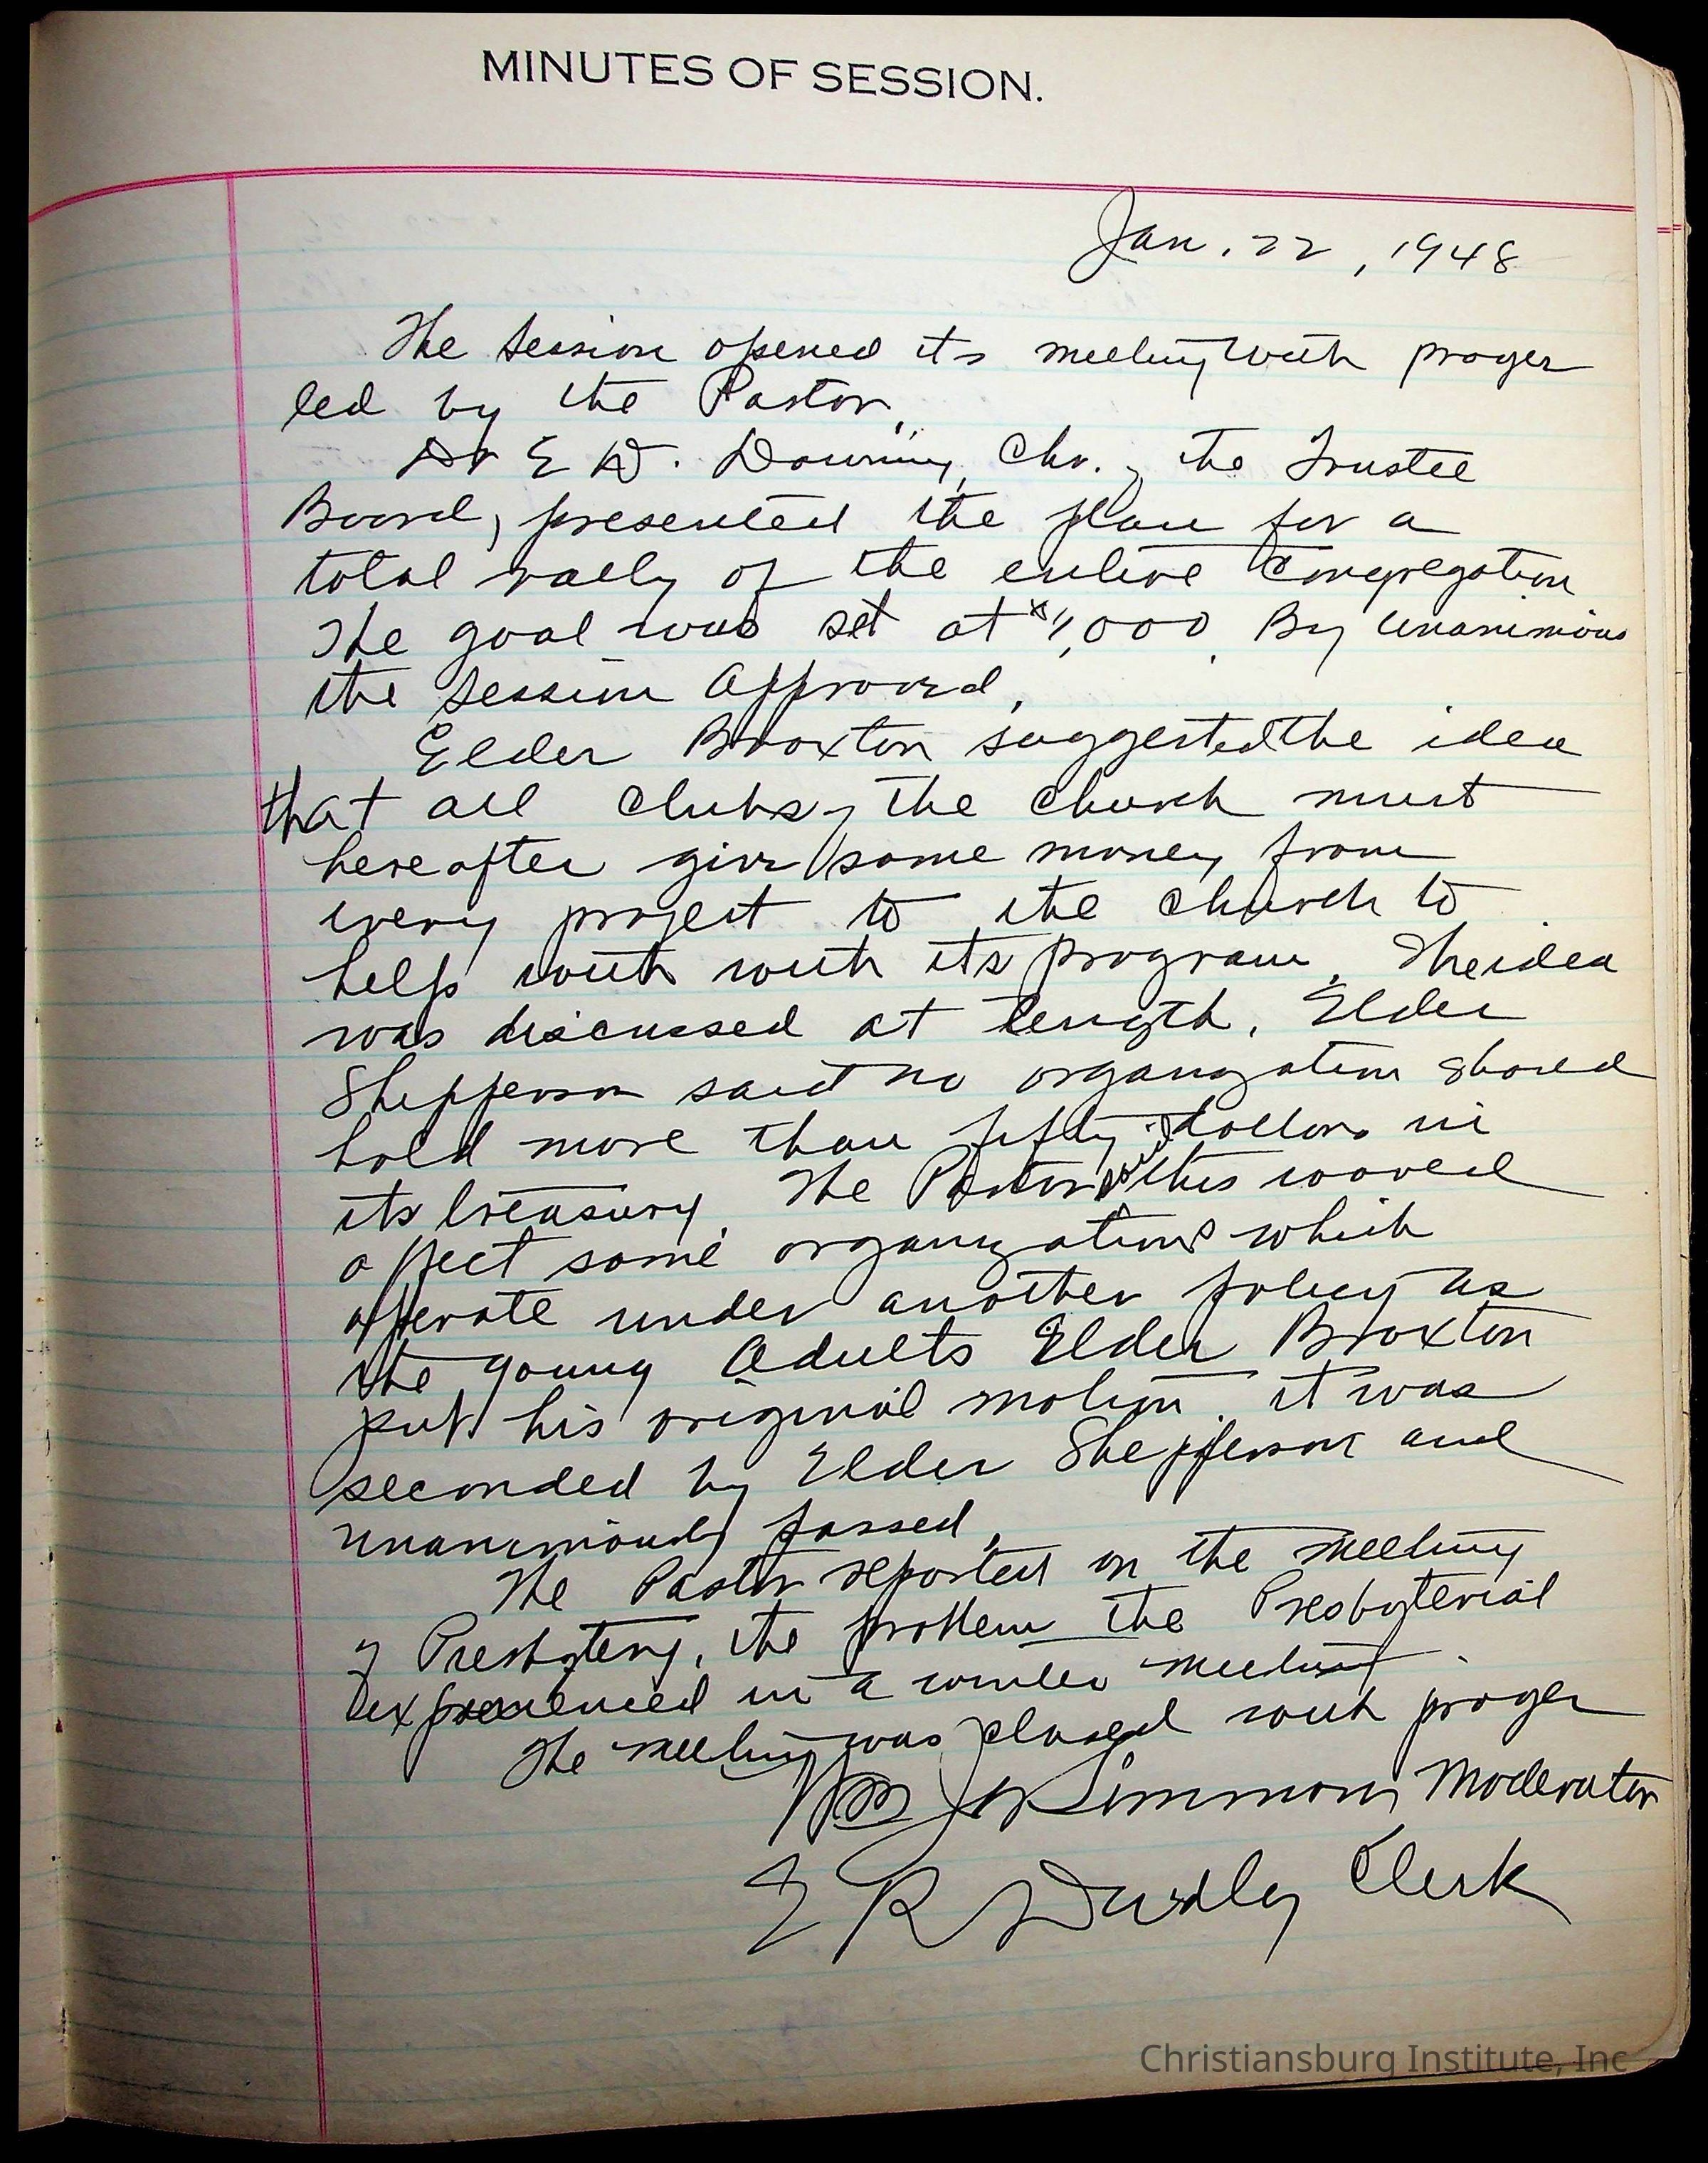 MINUTES OF SESSION.
Jan. 22, 1948
The Session opened its meeting with prayer
led by the Pastor.
Dr E D. Downing, Chr. of the Trustee
Board, presented the plan for a
total rally of the entire Congregation
The goal was set at $1,000. By unanimous
the Session Approved.
Elder Broxton suggested the idea
that all clubs of the church must
hereafter give some money from
every project to the church to
help with with its program. The idea
was discussed at length. Elder
Shepperson said no organization should
hold more than fifty dollars in
its treasury. The Pastor said this would
affect some organizations which
operate under another policy as
the young Adults Elder Broxton
put his original motion. it was
seconded by Elder Shepperson and
unanimously passed.
The Pastor reported on the meeting
of Presbytery, the problem the Presbyterial
experienced in a winter meeting.
The meeting was closed with prayer
Wm Simmons Moderator
E R Dudley Clerk
Christiansburg Institute, Inc